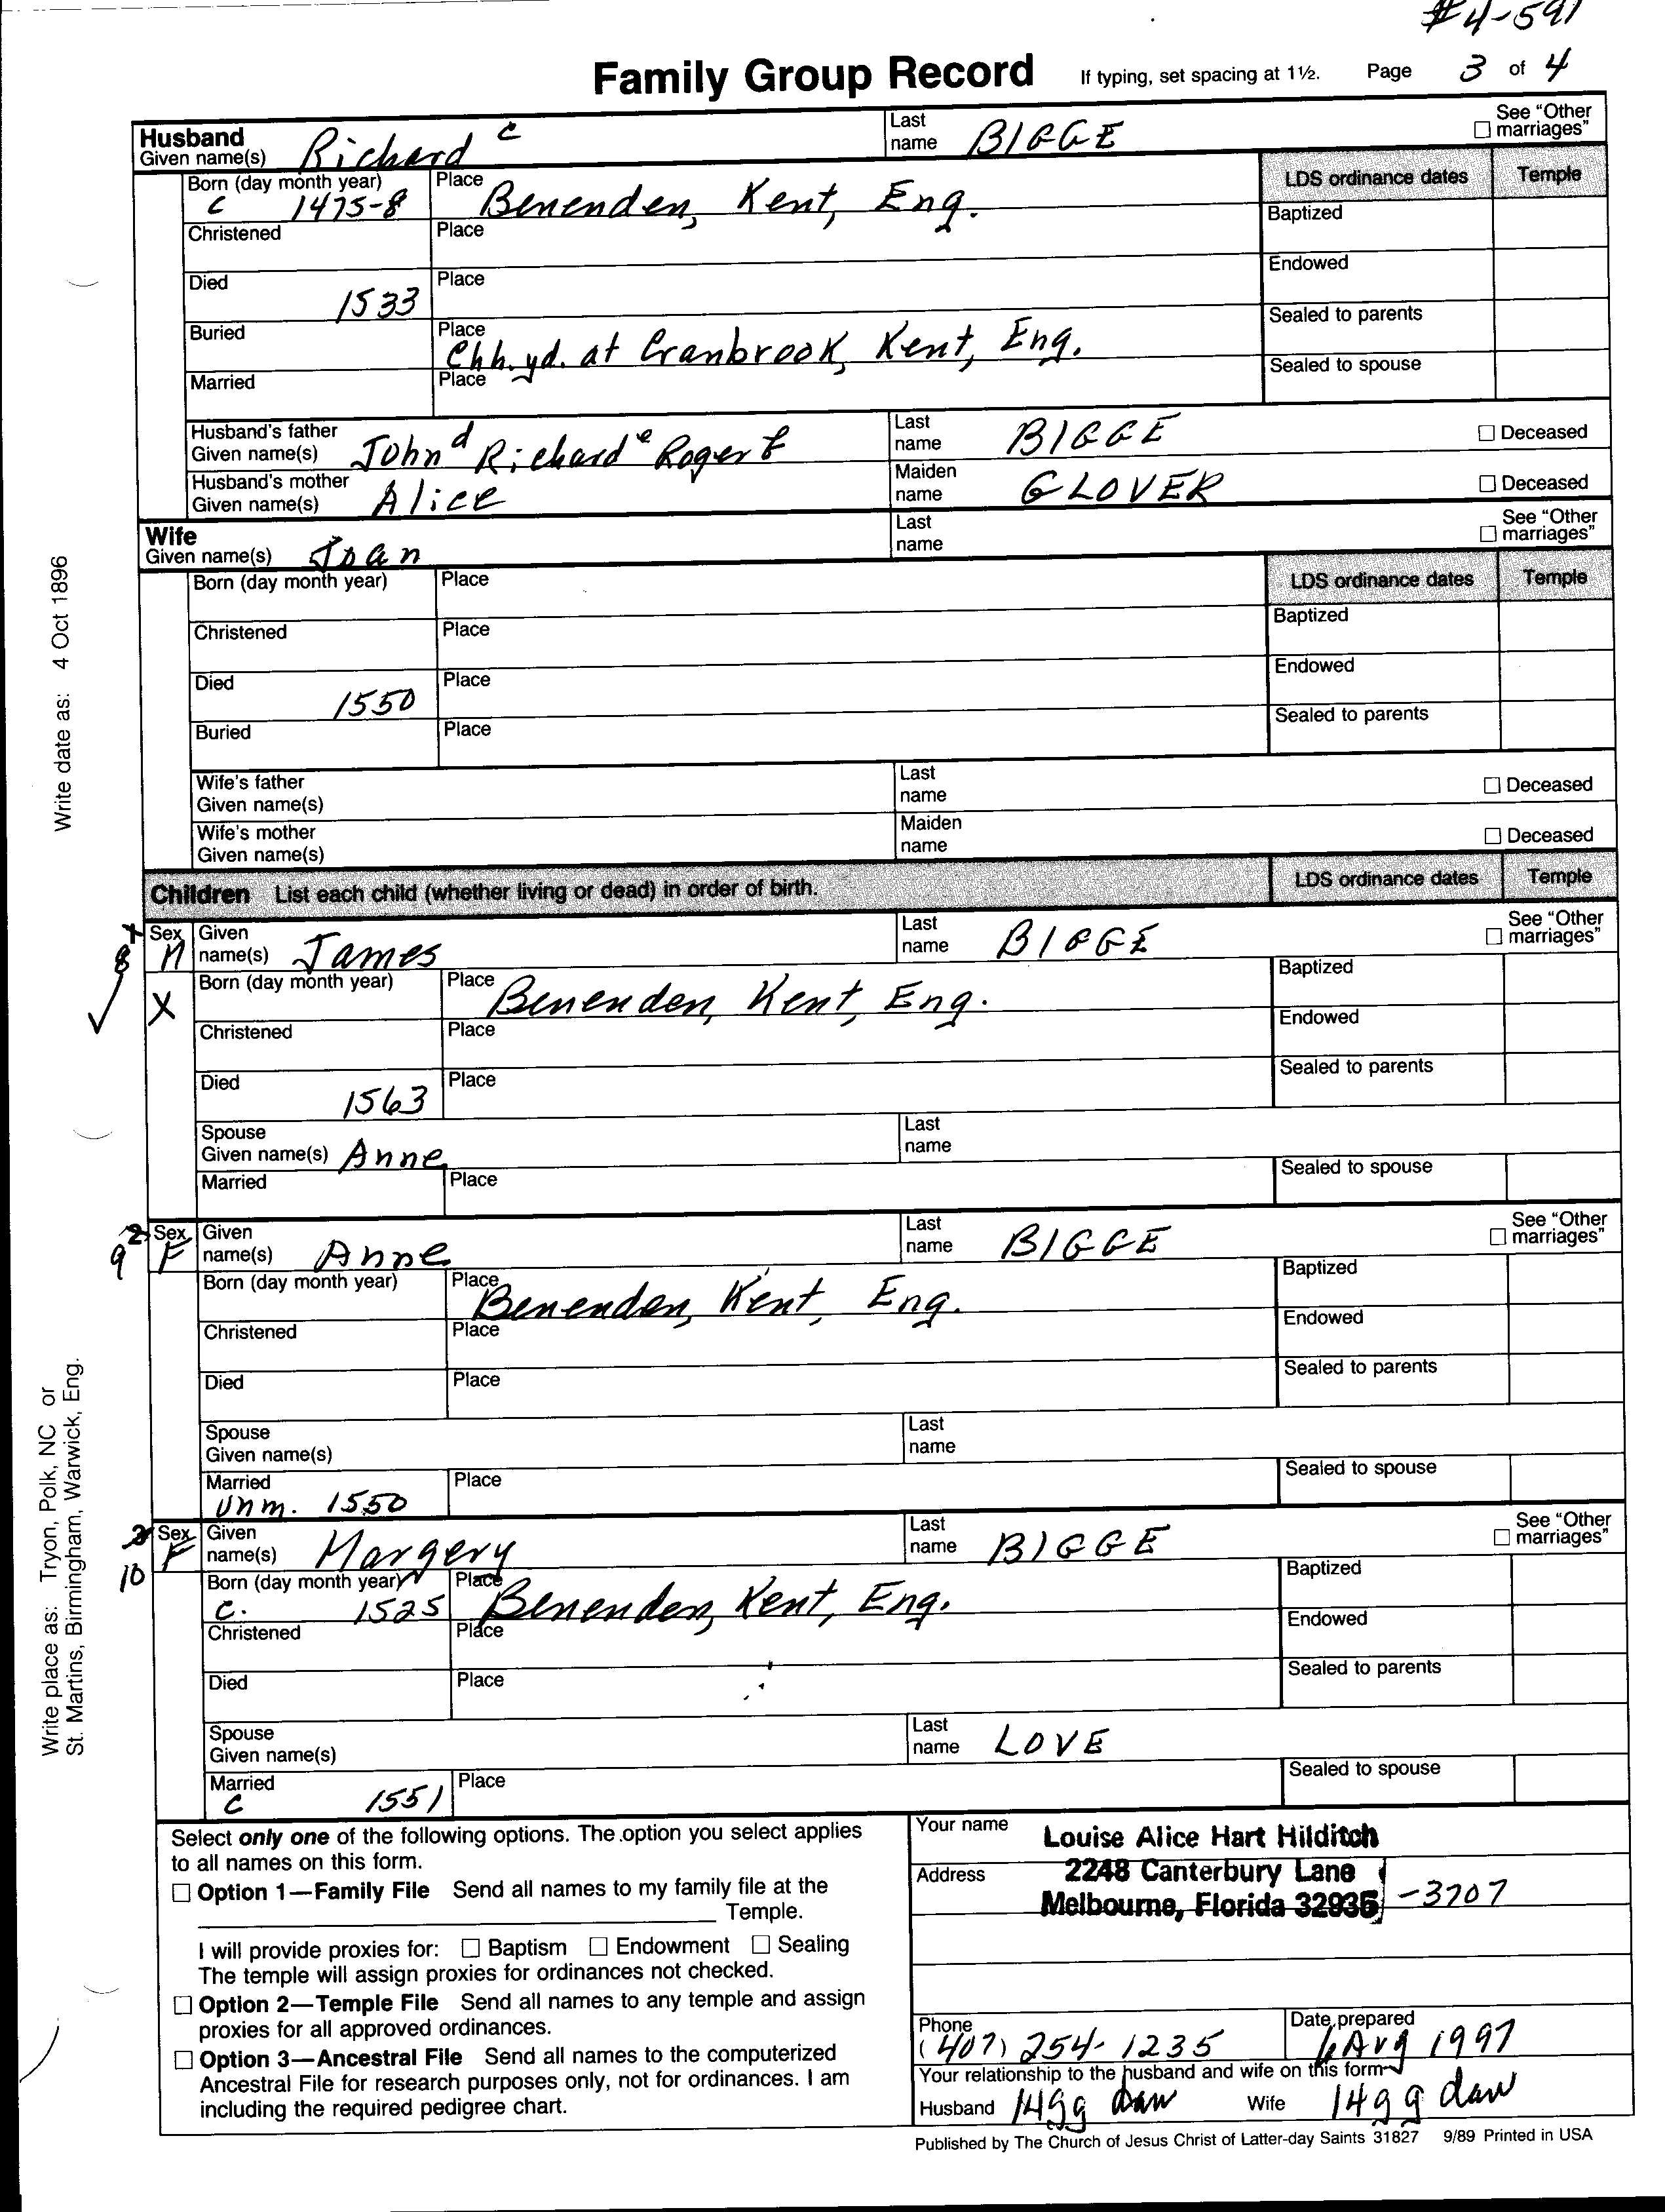 #4-591
Family Group Record If typing, set spacing at 1½. Page 3 of 4
Husband
Given name(s) Richard c Last name BIGGE See "Other marriages"
Born (day month year) c 1475-8 Place Benenden, Kent, Eng. LDS ordinance dates Temple
Baptized
Christened Place
Endowed
Died 1533 Place
Sealed to parents
Buried Place Chh.yd. at Cranbrook, Kent, Eng.
Sealed to spouse
Married Place
Husband's father Given name(s) John d Richard e Roger f Last name BIGGE Deceased
Husband's mother Given name(s) Alice Maiden name GLOVER Deceased
Wife
Given name(s) Joan Last name See "Other marriages"
Born (day month year) Place LDS ordinance dates Temple
Baptized
Christened Place
Endowed
Died 1550 Place
Sealed to parents
Buried Place
Wife's father Given name(s) Last name Deceased
Wife's mother Given name(s) Maiden name Deceased
Children List each child (whether living or dead) in order of birth. LDS ordinance dates Temple
8 Sex M Given name(s) James Last name BIGGE See "Other marriages"
X Born (day month year) Place Benenden, Kent, Eng. Baptized
Christened Place Endowed
Died 1563 Place Sealed to parents
Spouse Given name(s) Anne Last name
Married Place Sealed to spouse
2 9 Sex F Given name(s) Anne Last name BIGGE See "Other marriages"
Born (day month year) Place Benenden, Kent, Eng. Baptized
Christened Place Endowed
Died Place Sealed to parents
Spouse Given name(s) Last name
Married Unm. 1550 Place Sealed to spouse
3 10 Sex F Given name(s) Margery Last name BIGGE See "Other marriages"
Born (day month year) c. 1525 Place Benenden, Kent, Eng. Baptized
Christened Place Endowed
Died Place Sealed to parents
Spouse Given name(s) Last name LOVE
Married c 1551 Place Sealed to spouse
Select only one of the following options. The option you select applies
to all names on this form.
Option 1—Family File Send all names to my family file at the
Temple.
I will provide proxies for: Baptism Endowment Sealing
The temple will assign proxies for ordinances not checked.
Option 2—Temple File Send all names to any temple and assign
proxies for all approved ordinances.
Option 3—Ancestral File Send all names to the computerized
Ancestral File for research purposes only, not for ordinances. I am
including the required pedigree chart.
Your name Louise Alice Hart Hilditch
Address 2248 Canterbury Lane
Melbourne, Florida 32935 -3707
Phone (407) 254-1235 Date prepared 6 Aug 1997
Your relationship to the husband and wife on this form
Husband 14gg daw Wife 14gg daw
Published by The Church of Jesus Christ of Latter-day Saints 31827 9/89 Printed in USA
Write date as: 4 Oct 1896
Write place as: Tryon, Polk, NC or
St. Martins, Birmingham, Warwick, Eng.